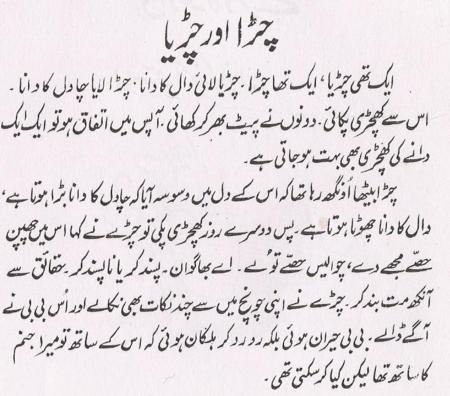 چڑا اور چڑیا
ایک تھی چڑیا، ایک تھا چڑا۔ چڑیا لائی دال کا دانا۔ چڑا لایا چاول کا دانا۔
اس سے کھچڑی پکائی۔ دونوں نے پیٹ بھر کر کھائی۔ آپس میں اتفاق ہو تو ایک ایک
دانے کی کھچڑی بھی بہت ہو جاتی ہے۔
چڑا بیٹھا اونگھ رہا تھا کہ اس کے دل میں وسوسہ آیا کہ چاول کا دانا بڑا ہوتا ہے،
دال کا دانا چھوٹا ہوتا ہے۔ پس دوسرے روز کھچڑی پکی تو چڑے نے کہا اس میں چھپن
حصے مجھے دے، چوالیس حصے تو لے۔ اے بھاگوان۔ پسند کر یا ناپسند کر۔ حقائق سے
آنکھ مت بند کر۔ چڑے نے اپنی چونچ میں سے چند نکات بھی نکالے اور اُس بی بی نے
آگے ڈالے۔ بی بی حیران ہوئی بلکہ رو رو کر ہلکان ہوئی کہ اس کے ساتھ تو میرا جنم
کا ساتھ تھا لیکن کیا کر سکتی تھی۔